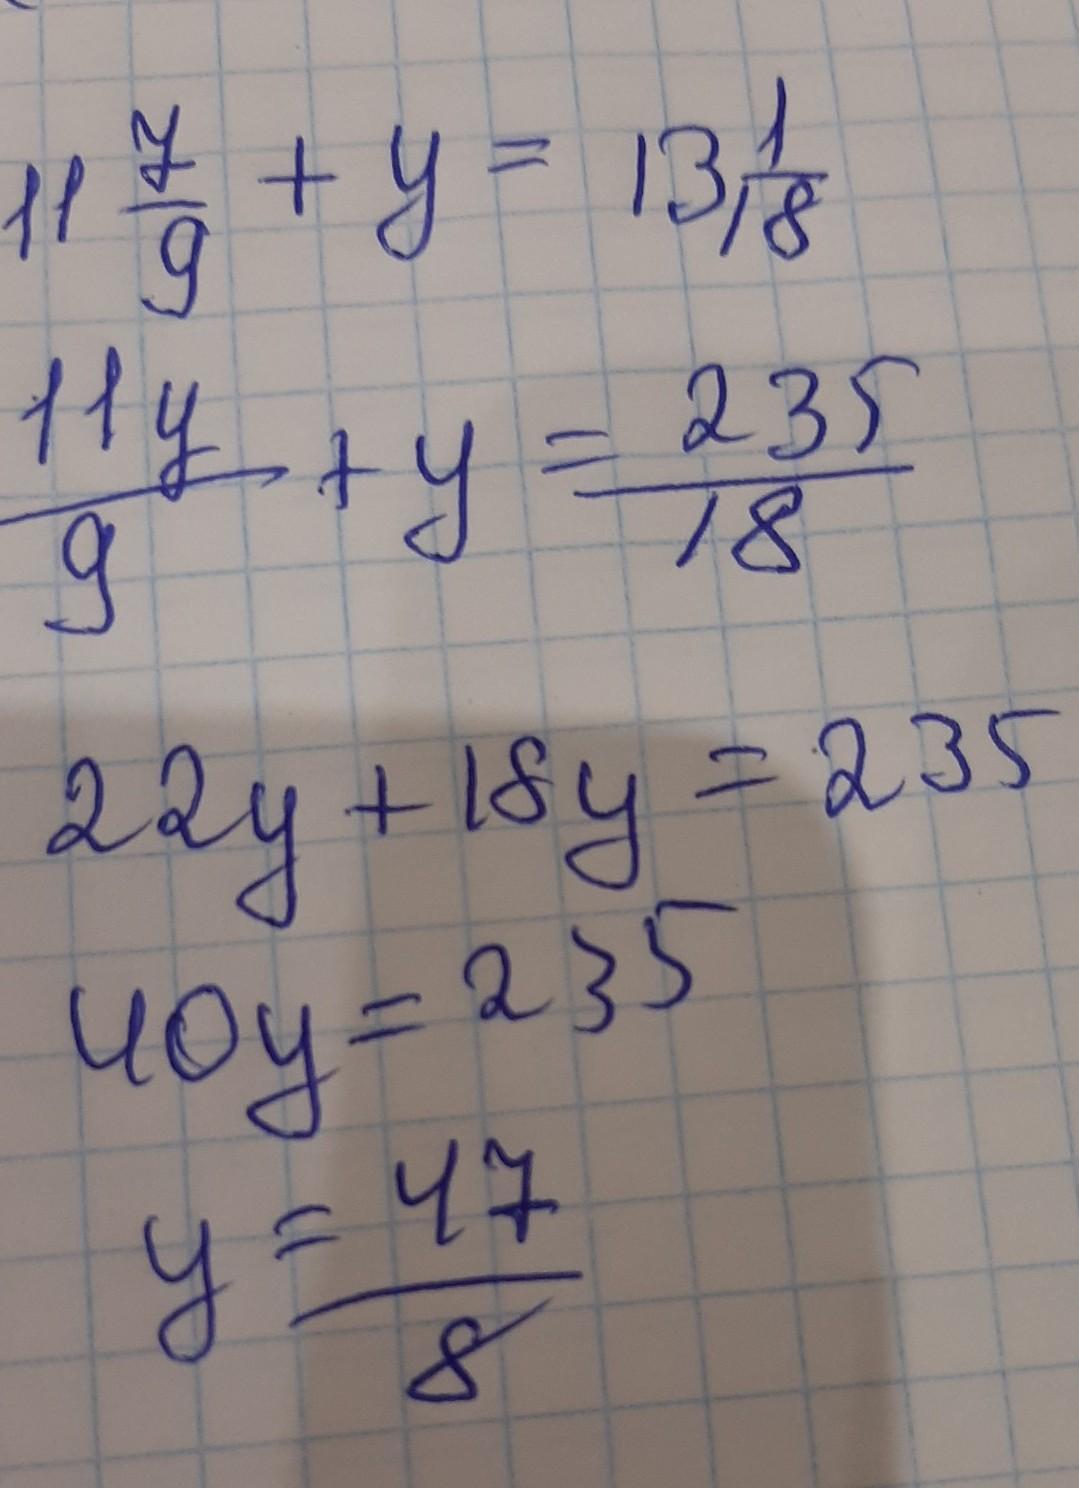 11 7/9 + y = 13 1/18
11y/9 + y = 235/18
22y + 18y = 235
40y = 235
y = 47/8